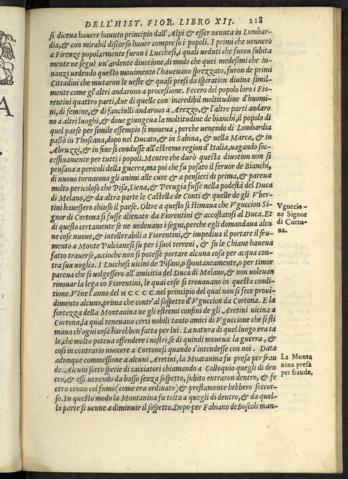 DELL'HIST. FIOR. LIBRO XII. 218
si diceua hauere hauuto principio dall'Alpi & esser uenuta in Lombar-
dia, & con mirabil discorso hauer compreso i popoli. I primi che uennero
a Firenze popolarmente furono i Lucchesi, i quali ueduti che furono subita
mente ne seguì un'ardente diuotione, di modo che quei medesimi che in-
nanzi uedendo questo mouimento l'haueuano sprezzato, furono de primi
Cittadini che mutarono le ueste & quasi presi da ispiration diuina simil-
mente come gl'altri andarono a processione. Fecero del popolo loro i Fio-
rentini quattro parti, due di quelle con incredibil moltitudine d'huomi-
ni, di femine, & di fanciulli andarono a Arezzo, & l'altre parti andaro
no a altri luoghi, & doue giungeua la moltitudine de bianchi, il popolo di
quel paese per simile essempio si moueua, perche uenendo di Lombardia
passò in Thoscana, dopo nel Ducato, & in Sabina, & nella Marca, & in
Abruzzi, & in fine si condusse all'estremo region d'Italia, uagando suc-
cessiuamente per tutti i popoli. Mentre che durò questa diuotion non si
pensaua a pericoli della guerra, ma poi che fu posato il feruor de Bianchi,
di nuouo tornarono gli animi alle cure & a pensieri di prima, & pareua
molto pericoloso che Pisa, Siena, & Perugia fusse nella podestà del Duca
di Melano, & da altra parte le Castella de Conti & quelle de gli Vber-
tini hauessero chiuso il paese. Oltre a questo si stimaua che Vguccion Si-
gnor di Cortona si fusse alienato da Fiorentini & accostatosi al Duca. Et
Vguccio-
ne Signor
di Corto-
na.
di questo certamente se ne uedeuano i segni, perche egli domandaua alcu
ne cose nuoue, & intollerabili a Fiorentini, & impediua il portare il fru-
mento a Monte Pulcianesi su per i suoi terreni, & su le Chiane haueua
fatto trauerse, accioche non si potesse portare alcuna cosa per acqua con-
tra sua uoglia. I Lucchesi uicini de Pisani, spontaneamente, o per timor
pareua che si uolgessero all'amicitia del Duca di Melano, & non uoleuan
rimouar la lega co Fiorentini, le quai cose si trouauano in questa conditi-
tione. Vẽne l'anno del M C C C C. nel principio del quai non si fece proui-
dimento alcuno, prima che contr'al sospetto d'Vguccion da Cortona. E la
fortezza della Montanina ne gli estremi confini de gli Aretini uicina a
Cortona, la qual teneuano certi nobili tanto amici di Vguccione che si sti
maua ch'ogni cosa harebbon fatta per lui. La natura di quel luogo era ta
le, che molto poteua offendere i nostri, se di quindi moueua la guerra, &
cosi in contrario nuocere a Cortonesi quando s'intendesse con noi. Data
adunque commessione a alcuni Aretini, la Montanina fu presa per frau
La Monta
nina presa
per fraude.
de. Alcuni sotto spetie di cacciatori chiamando a Colloquio quegli di den
tro, & essi uenendo da basso senza sospetto, subito entraron dentro, & fe
cero cenno col fumo (come era ordinato) & prestamente hebbero soccor-
so. In questo modo la Montanina fu tolta a quegli di dentro, & da quel-
la parte si uenne a diminuir il sospetto. Dopo per Fabiano de Boscoli man-